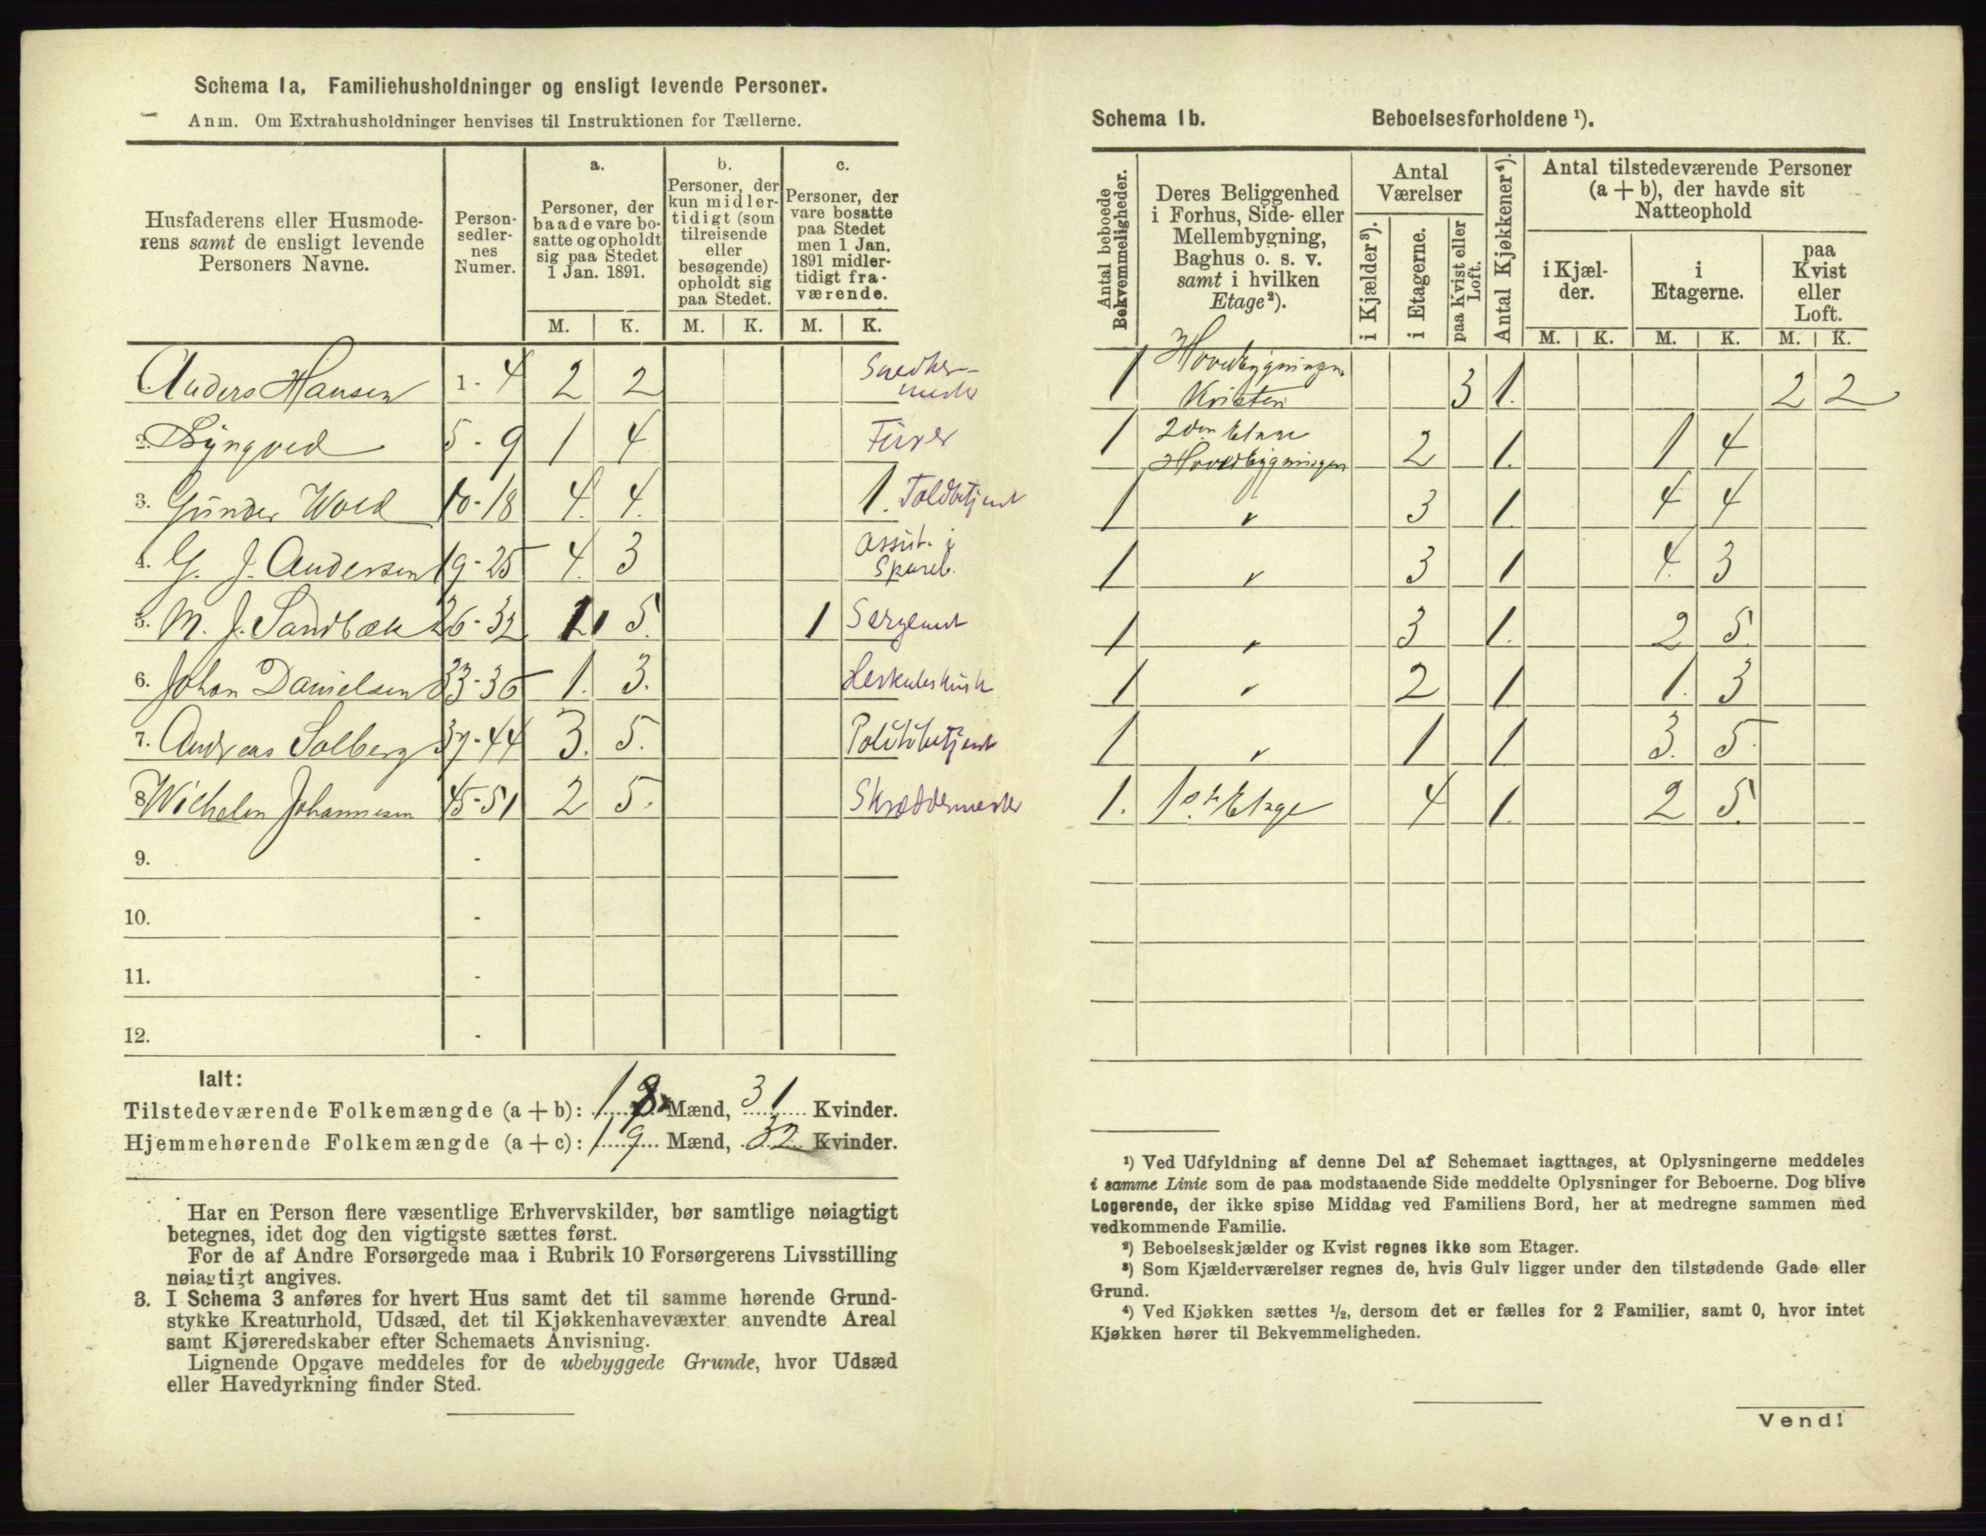 Schema 1a. Familiehusholdninger og ensligt levende Personer.
Anm. Om Extrahusholdninger henvises til Instruktionen for Tællerne.
Husfaderens eller Husmoderens samt de ensligt levende Personers Navne.
Personsedlernes Numer.
a. Personer, der baade vare bosatte og opholdt sig paa Stedet 1 Jan. 1891.
b. Personer, der kun midlertidigt (som tilreisende eller besøgende) opholdt sig paa Stedet.
c. Personer, der vare bosatte paa Stedet men 1 Jan. 1891 midlertidigt fraværende.
M. K. M. K. M. K.
Anders Hansen 1 - 4 2 2
2. Lyngved 5 - 9 1 4 Fürer
3. Gunder Wold 10 - 18 4. 4. 1. Toldbetjent
4. G. J. Andersen 19 - 25 4. 3 Assist. i Spareb.
5. M. J. Sandbæk 26 - 32 1 5. 1 Sergeant
6. Johan Danielsen 33 - 36 1. 3.
7. Andreas Solberg 37 - 44 3. 5. Politibetjent
8 Wilhelm Johannesen 45 - 51 2 5. Skræddermester
9. -
10. -
11. -
12. -
Ialt:
Tilstedeværende Folkemængde (a + b): 18 Mænd, 31 Kvinder.
Hjemmehørende Folkemængde (a + c): 19 Mænd, 32 Kvinder.
Har en Person flere væsentlige Erhvervskilder, bør samtlige nøiagtigt
betegnes, idet dog den vigtigste sættes først.
For de af Andre Forsørgede maa i Rubrik 10 Forsørgerens Livsstilling
nøiagtigt angives.
3. I Schema 3 anføres for hvert Hus samt det til samme hørende Grund-
stykke Kreaturhold, Udsæd, det til Kjøkkenhavevæxter anvendte Areal
samt Kjøreredskaber efter Schemaets Anvisning.
Lignende Opgave meddeles for de ubebyggede Grunde, hvor Udsæd
eller Havedyrkning finder Sted.
Schema 1b. Beboelsesforholdene ¹).
Antal beboede Bekvemmeligheder.
Deres Beliggenhed i Forhus, Side- eller Mellembygning, Baghus o. s. v. samt i hvilken Etage²).
Antal Værelser
i Kjælder³).
i Etagerne.
paa Kvist eller Loft.
Antal Kjøkkener⁴).
Antal tilstedeværende Personer (a + b), der havde sit Natteophold
i Kjælder.
i Etagerne.
paa Kvist eller Loft.
M. K. M. K. M. K.
1 Hovedbygningen Kvisten 3 1. 2 2
1 2den Etage Hovedbygningen 2 1. 1 4
1 " 3 1. 4 4
1 " 3 1 4. 3
1 " 3 1. 2 5.
1 " 2 1 1. 3
1 " 1 1 3. 5.
1. 1ste Etage 4 1. 2 5.
¹) Ved Udfyldning af denne Del af Schemaet iagttages, at Oplysningerne meddeles
i samme Linie som de paa modstaaende Side meddelte Oplysninger for Beboerne. Dog blive
Logerende, der ikke spise Middag ved Familiens Bord, her at medregne sammen med
vedkommende Familie.
²) Beboelseskjælder og Kvist regnes ikke som Etager.
³) Som Kjælderværelser regnes de, hvis Gulv ligger under den tilstødende Gade eller
Grund.
⁴) Ved Kjøkken sættes ½, dersom det er fælles for 2 Familier, samt 0, hvor intet
Kjøkken hører til Bekvemmeligheden.
Vend!